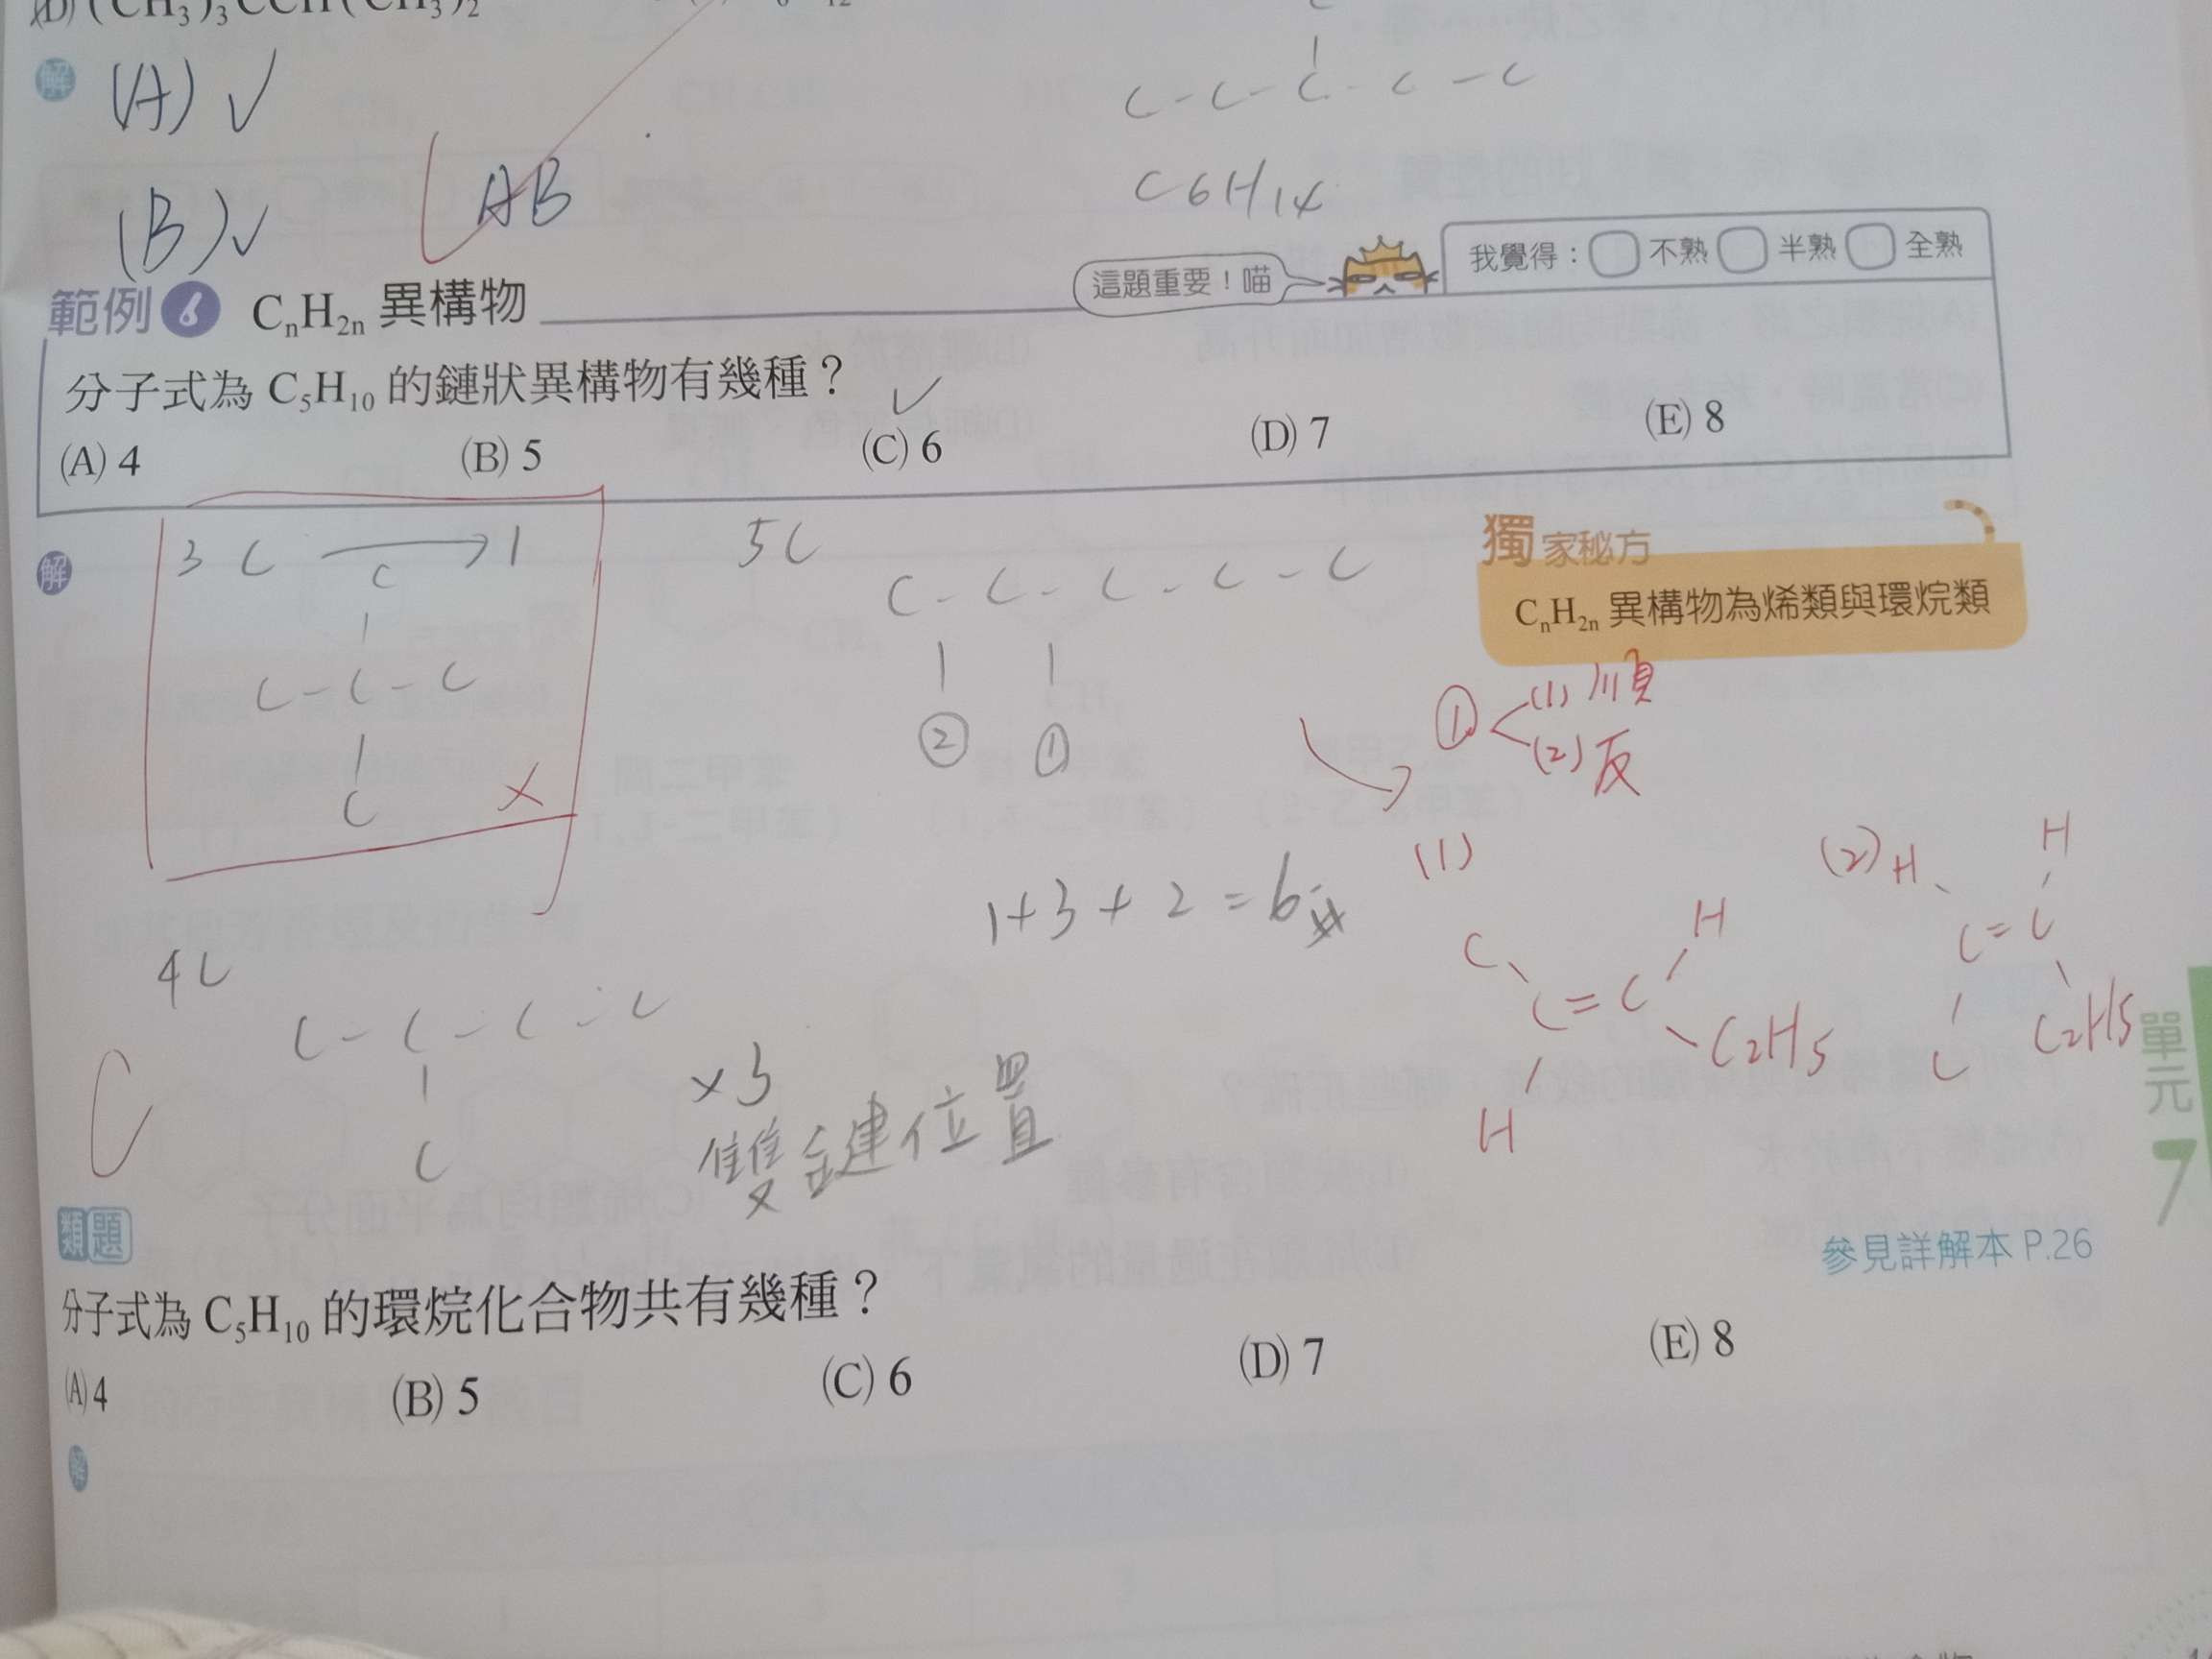 (D) (CH₃)₃CCH(CH₃)₂
解
(A) ✓
(B) ✓
AB
C
C-C-C-C-C
C6H14
這題重要！喵
我覺得： 不熟 半熟 全熟
範例 6 CₙH₂ₙ 異構物
分子式為 C₅H₁₀ 的鏈狀異構物有幾種？
(A) 4 (B) 5 (C) 6 (D) 7 (E) 8
✓
解
3C → 1
C
C-C-C
C
×
5C
C-C-C-C-C
② ①
獨家秘方
CₙH₂ₙ 異構物為烯類與環烷類
① (1) 順
(2) 反
1+3+2=6
(1)
C H
C=C
H C2H5
(2)
H H
C=C
C C2H5
4C
C-C-C-C
C
×3
雙鍵位置
C
單元
7
類題
參見詳解本 P.26
分子式為 C₅H₁₀ 的環烷化合物共有幾種？
(A) 4 (B) 5 (C) 6 (D) 7 (E) 8
解